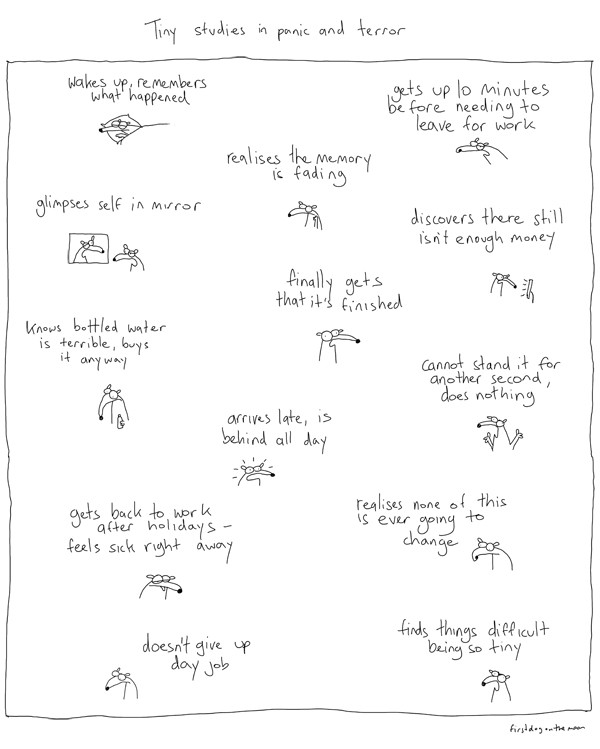 Tiny studies in panic and terror
wakes up, remembers
what happened
gets up 10 minutes
before needing to
leave for work
realises the memory
is fading
glimpses self in mirror
discovers there still
isn't enough money
finally gets
that it's finished
knows bottled water
is terrible, buys
it anyway
cannot stand it for
another second,
does nothing
arrives late, is
behind all day
gets back to work
after holidays –
feels sick right away
realises none of this
is ever going to
change
doesn't give up
day job
finds things difficult
being so tiny
firstdogonthemoon